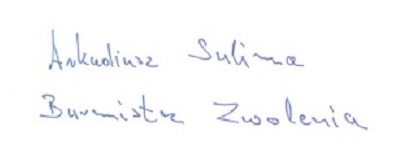 Arkadiusz Sulima
Burmistrz Zwolenia